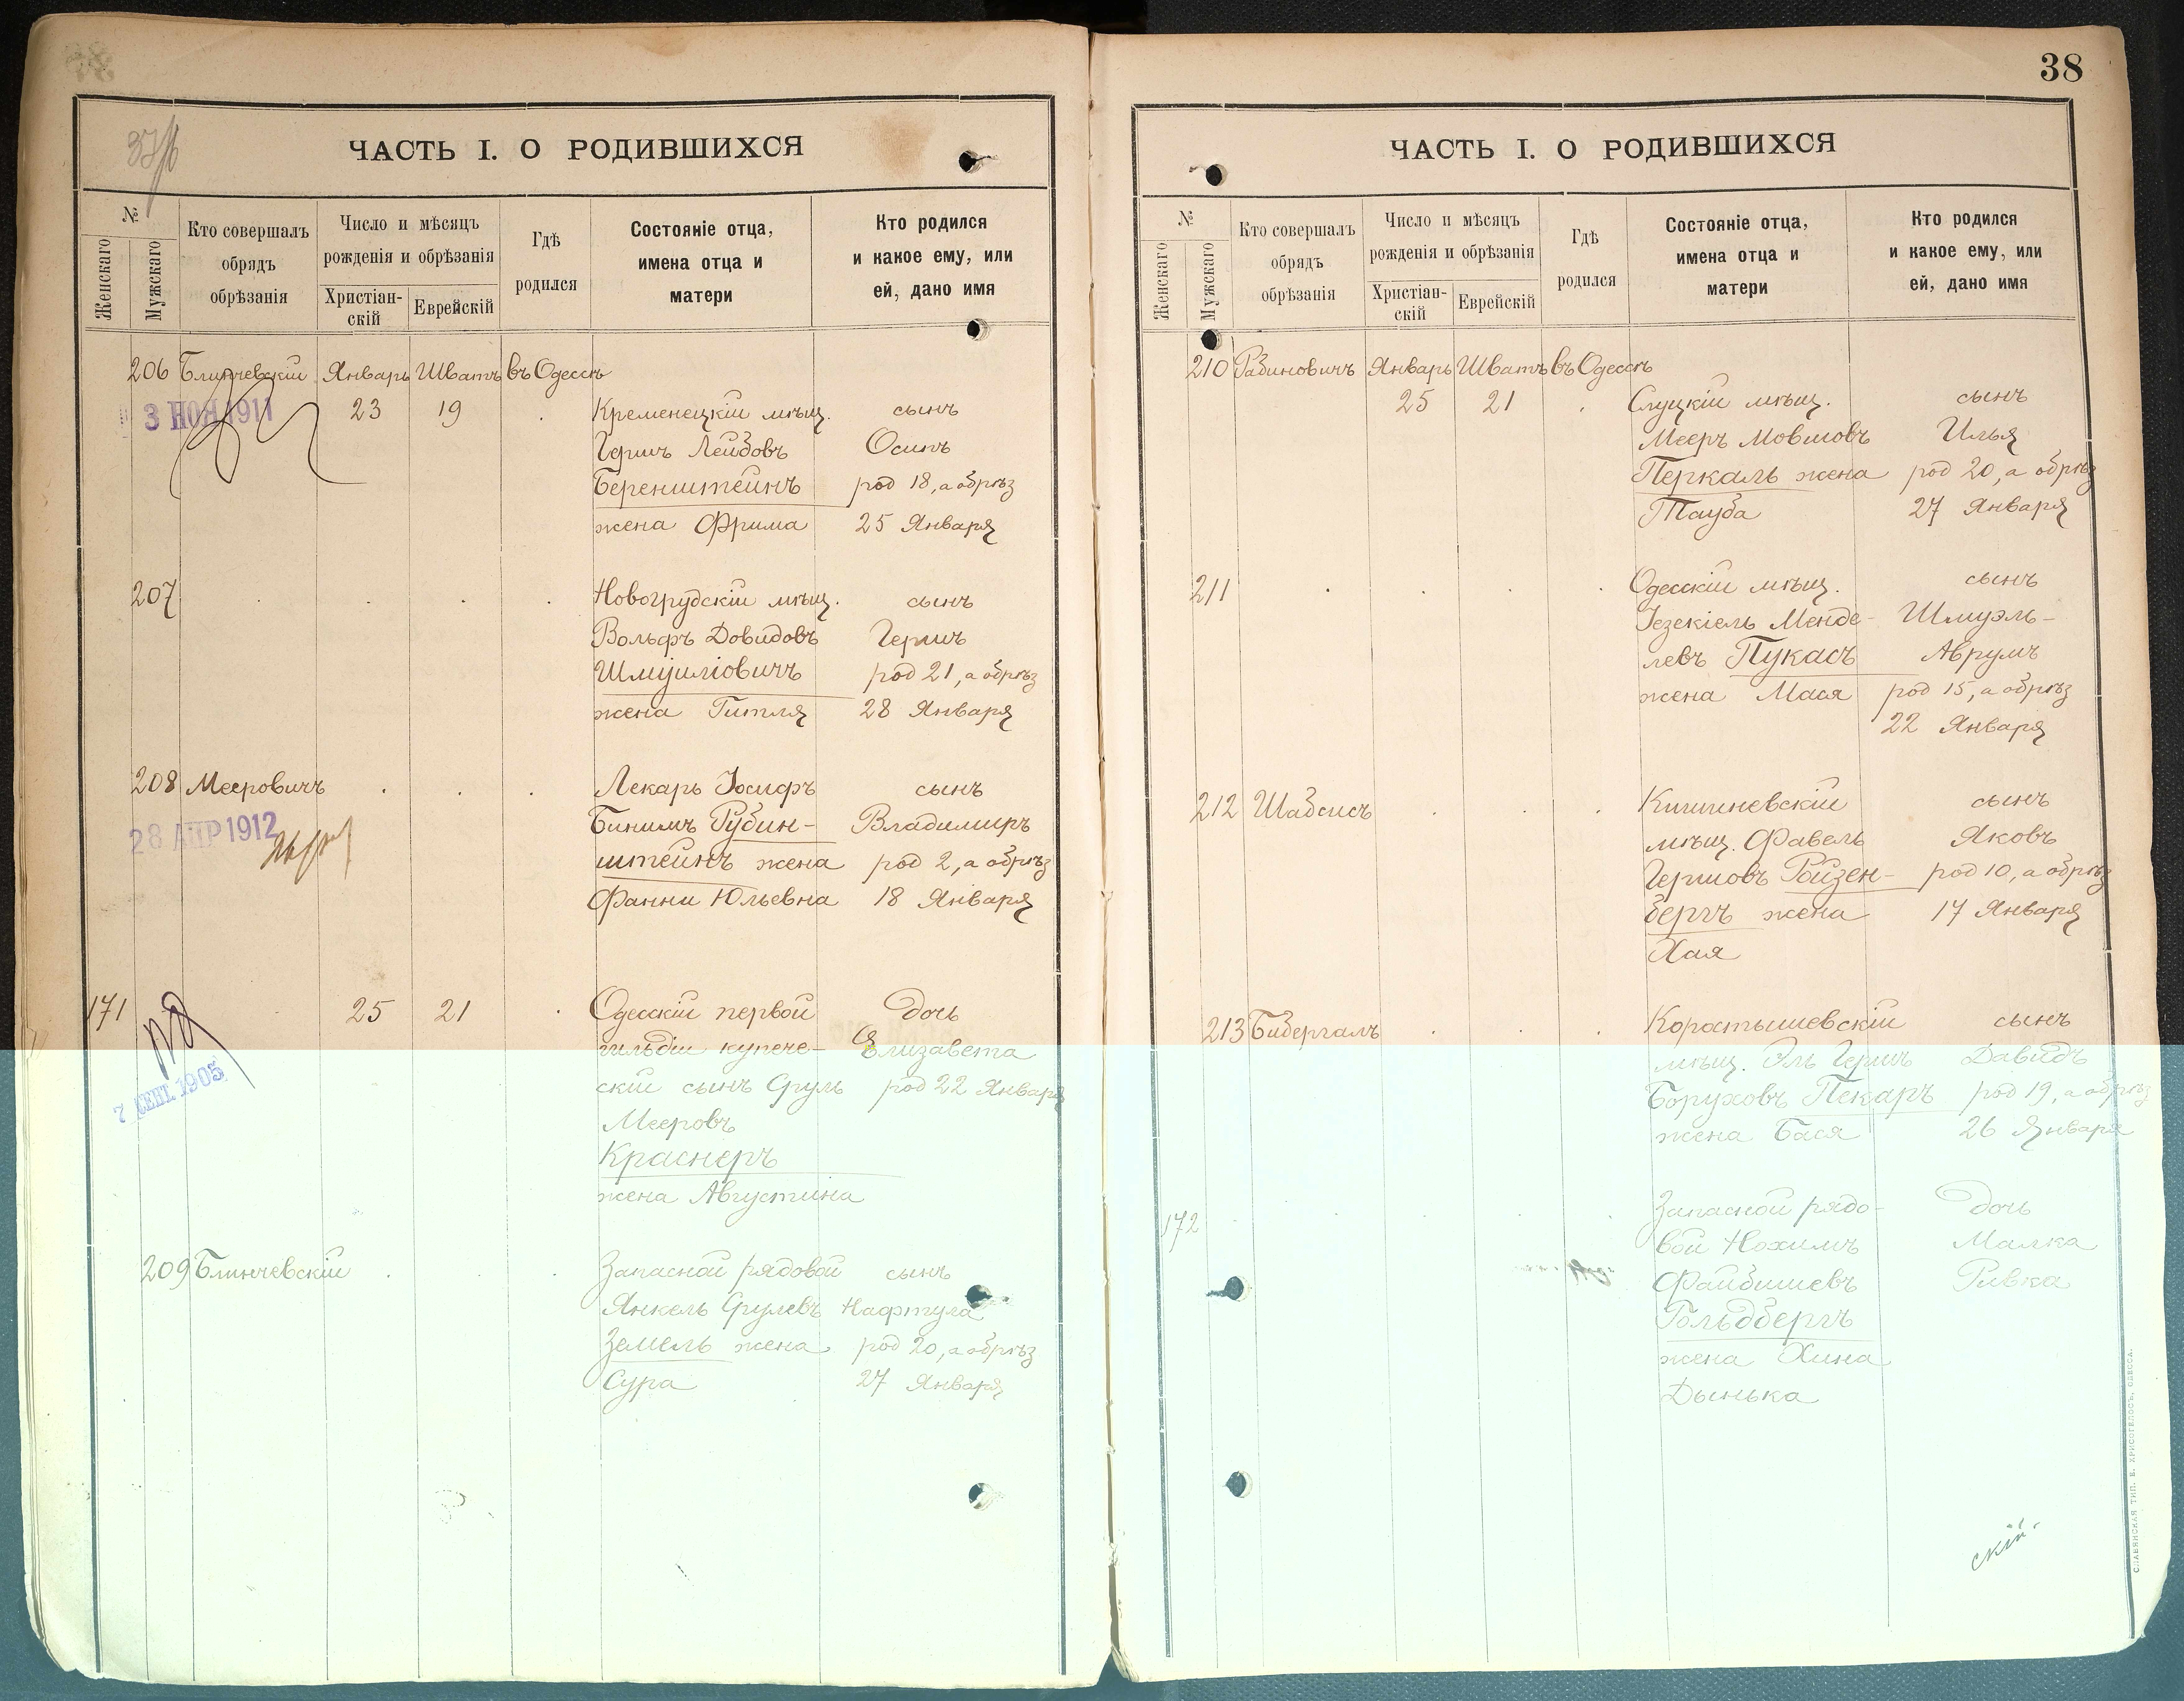 38
ЧАСТЬ I. О РОДИВШИХСЯ
№
Женскаго
Мужскаго
Кто совершалъ
обрядъ
обрѣзанія
Число и мѣсяцъ
рожденія и обрѣзанія
Христіан-
скій
Еврейскій
Гдѣ
родился
Состояніе отца,
имена отца и
матери
Кто родился
и какое ему, или
ей, дано имя
206 Блинчевскій Январь Шватъ въ Одессѣ
3 НОЯ 1911
23 19 Кременецкій мѣщ. сынъ
Гершъ Лейбовъ Осипъ
Беренштейнъ род 18, а обрѣз
жена Фрима 25 Января
207 Новогрудскій мѣщ. сынъ
Вольфъ Довидовъ Гершъ
Шмуиловичъ род 21, а обрѣз
жена Гитля 28 Января
208 Мееровичъ Лекарь Іосифъ сынъ
28 АПР 1912
Бинимъ Рубин- Владимиръ
штейнъ жена род 2, а обрѣз
Фанни Юльевна 18 Января
171 25 21 Одесскій первой дочь
гильдіи купече- Елизавета
7 СЕНТ. 1905
скій сынъ Сруль род 22 Января
Мееровъ
Краснеръ
жена Августина
209 Блинчевскій Запасной рядовой сынъ
Янкель Срулевъ Нафтула
Земель жена род 20, а обрѣз
Сура 27 Января
ЧАСТЬ I. О РОДИВШИХСЯ
№
Женскаго
Мужскаго
Кто совершалъ
обрядъ
обрѣзанія
Число и мѣсяцъ
рожденія и обрѣзанія
Христіан-
скій
Еврейскій
Гдѣ
родился
Состояніе отца,
имена отца и
матери
Кто родился
и какое ему, или
ей, дано имя
210 Рабиновичъ Январь Шватъ въ Одессѣ
25 21 Слуцкій мѣщ. сынъ
Мееръ Мовшовъ Илья
Перкаль жена род 20, а обрѣз
Тауба 27 Января
211 Одесскій мѣщ. сынъ
Іезекіель Менде- Шмуэль-
левъ Пукасъ Аврумъ
жена Мася род 15, а обрѣз
22 Января
212 Шабсисъ Кишиневскій сынъ
мѣщ. Фавель Яковъ
Гершовъ Ройзен- род 10, а обрѣз
бергъ жена 17 Января
Хая
213 Бибергалъ Коростышевскій сынъ
мѣщ. Эль Гершъ Давидъ
Боруховъ Пекаръ род 19, а обрѣз
жена Бася 26 Января
172 Запасной рядо- дочь
вой Нохимъ Малка
Файбишевъ Ривка
Гольдбергъ
жена Хина
Дынька
скій
СЛАВЯНСКАЯ ТИП. Е. ХРИСОГЕЛОСЪ, ОДЕССА.